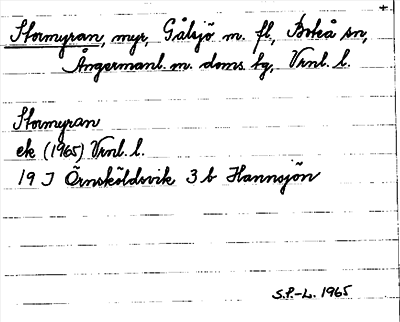 Stormyran, myr, Gålsjö m. fl., Boteå sn,
Ångermanl. m. doms. hg, Vrnl. l.
Stormyran
ek (1965) Vrnl. l.
19 J Örnsköldsvik 3 b Hannsjön
S.P.-L. 1965